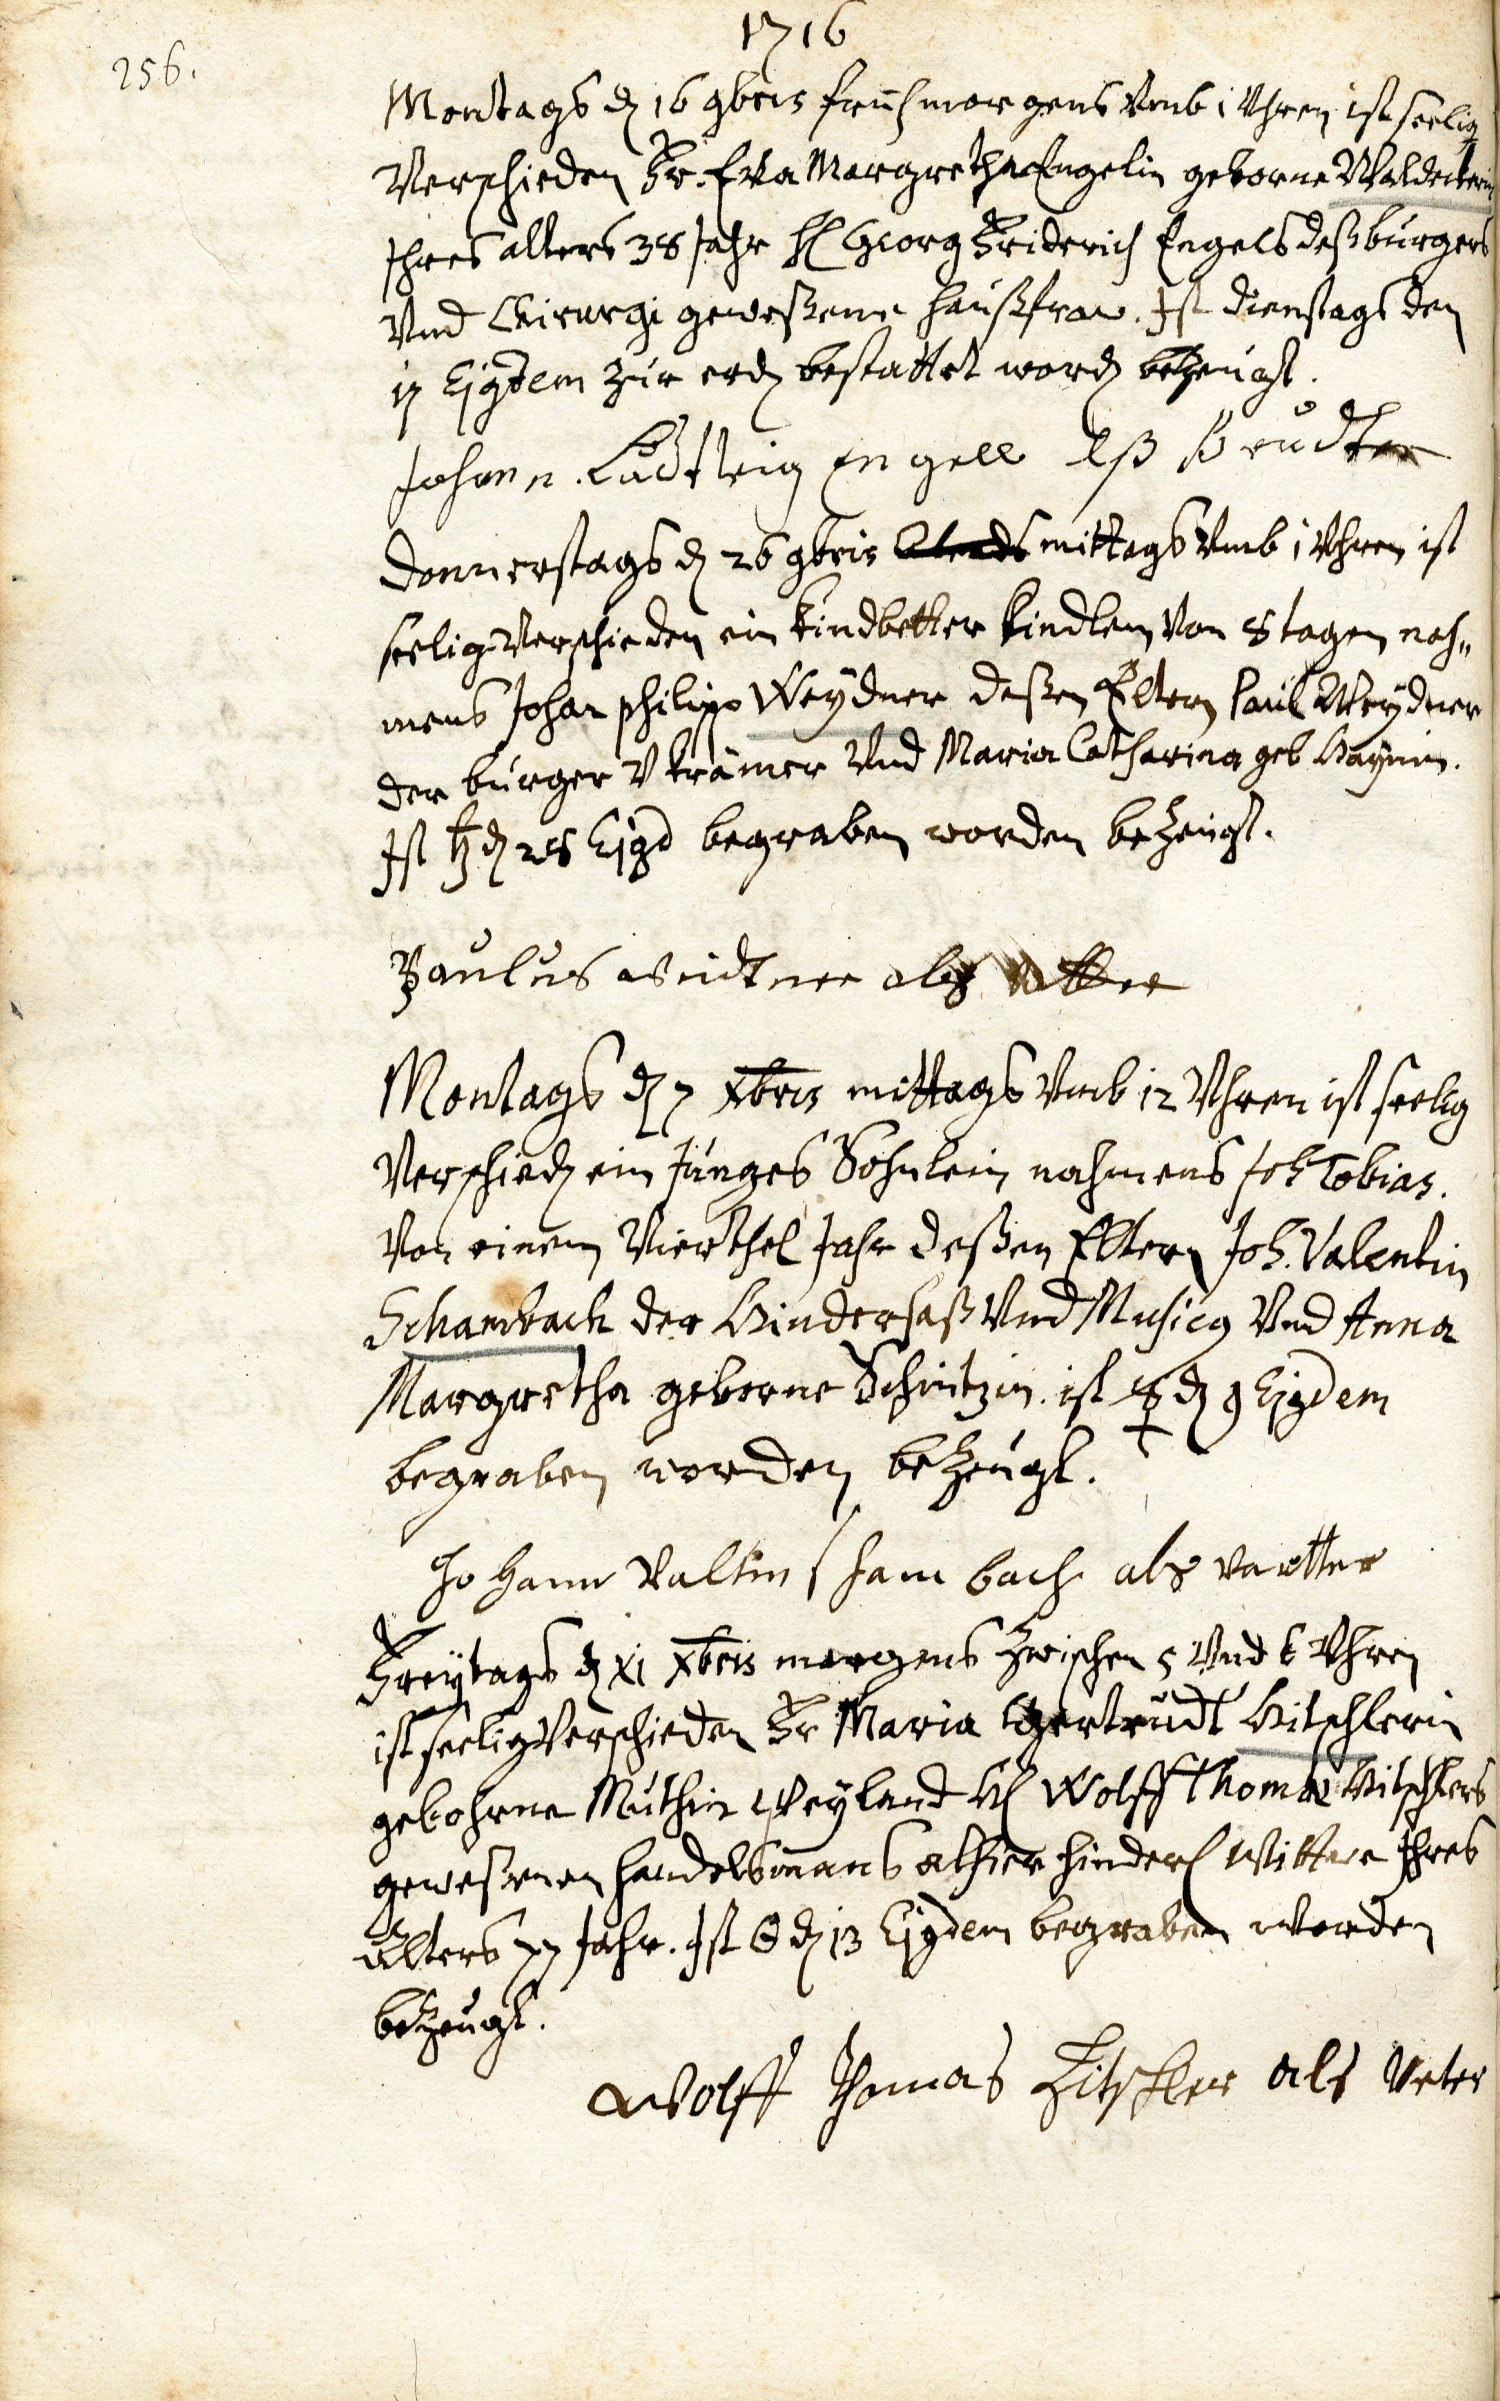 1716
256.
Montags d 16 9bris frühmorgens Vmb 1 Vhren ist seelig
Verschieden Fr. Eva Margretha Engelin geborne Waldeckerin
Ihres alters 38 Jahr H Georg Friderich Engels deß burgers
Vnd Chirurgi geweßene haußfraw. Ist dienstags den
17 Ejgdem zur erd bestattet word bezeugt.
Johann Ludtwig Engell alß brudter
Donnerstags d 26 9bris mittags Vmb 1 Vhren ist
seelig Verschieden ein kindbetter kindlein Von 8 tagen nah=
mens Johan philipp Weydner deßen Eltern Paul Weydner
der burger V krämer Vnd Maria Catharina geb Haynin.
Ist ♄ d 28 Ejgd begraben worden bezeugt.
Paulus Weidtner alß Vatter
Montags d 7 Xbris mittags Vmb 12 Vhren ist seelig
Verschied ein Junges Söhnlein nahmens Joh Tobias.
Von einem Vierthel Jahr deßen Eltern Joh. Valentin
Schambach der Hindersaß Vnd Musicg Vnd Anna
Margretha geborne Schintzin. ist ☿ d 9 Ejgdem
begraben worden bezeugt.
Johann Valtin schambach als vartter
Freytags d XI Xbris morgens zwischen 5 Vnd 6 Vhren
ist seelig Verschieden Fr Maria Gertrudt Hitschlerin
gebohrne Muthin Weyland H Wolff Thomae Hitschlers
geweßenen handelsmans alhier hinderl Wittwe Ihres
Alters 77 Jahr. Ist ☉ d 13 Ejgdem begraben worden
bezeugt.
Wolff Thomas Hitschler als Veter